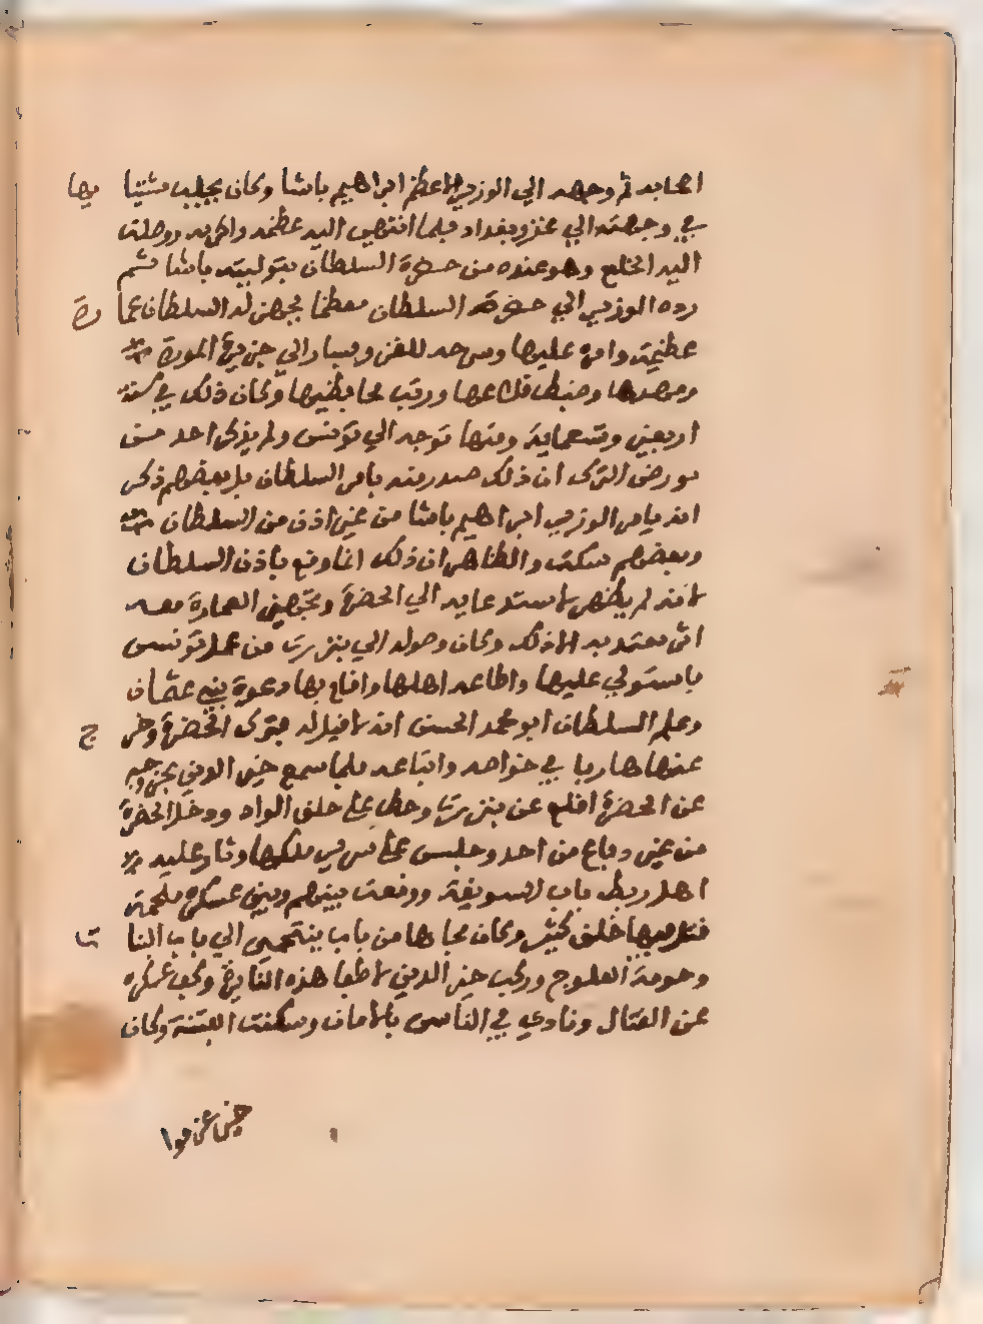 اصحابه ثم وجهه الي الوزير الاعظم ابراهيم باشا وكان بحلب مشتيا بها
في وجهته الي غزو بغداد فلما انتهي اليه عظمه واكرمه ووصلت
اليه الخلع وهو عنده من حضرة السلطان بتوليته باشا ثم
رده الوزير الي حضرة السلطان معظما فجهز له السلطان عمارة
عظيمة وامره عليها وسرحه للغزو وسار الي جزيرة المورة
ومهدها وضبط قلاعها ورتب محافظيها وكان ذلك في سنة
اربعين وتسعماية ومنها توجه الي تونس ولم يذكر احد من
مورخي الترك ان ذلك صدر منه بامر السلطان بل بعضهم ذكر
انه بامر الوزير ابراهيم باشا من غير اذن من السلطان
وبعضهم سكت والظاهر ان ذلك انما وقع باذن السلطان
لانه لم يظهر لاستدعايه الي الحضرة وتجهيز العمارة معه
اثر يعتد به الا ذلك وكان وصوله الي بنزرت من عمل تونس
فاستولي عليها واطاعه اهلها واقام بها دعوة بني عثمان
وعلم السلطان ابو محمد الحسن انه لا قبل له فترك الحضرة وخرج
عنها هاربا في خواصه واتباعه فلما سمع خير الدين بخروجه
عن الحضرة اقلع عن بنزرت وحط علي حلق الواد ودخل الحضرة
من غير دفاع من احد وجلس علي سرير ملكها وثار عليه
اهل ربط باب السويقة ووقعت بينهم وبين عسكره ملحمة
قتل فيها خلق كثير وكان مجالها من باب ينتهي الي باب البنات
وحومة العلوج وركب خير الدين لاطفا هذه النايرة وكف عسكره
عن القتال ونادي في الناس بالامان وسكنت الفتنة وكان